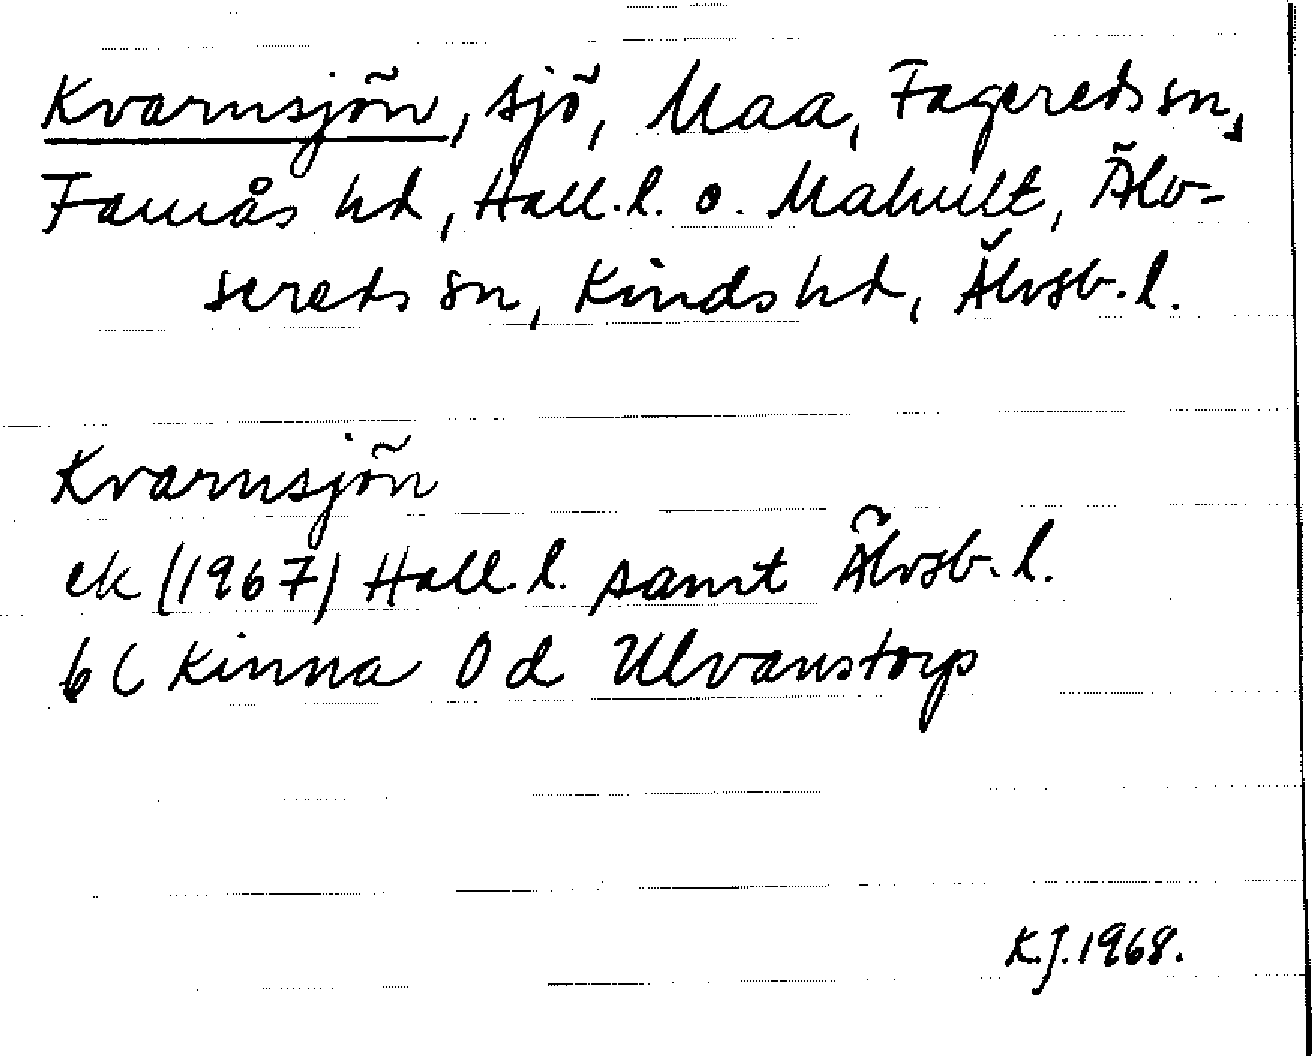 Kvarnsjön, sjö, Maa, Fagereds sn,
Faurås hd, Hall.l. o. Mahult, Älv-
sereds sn, Kinds hd, Älvsb.l.
Kvarnsjön
ek (1967) Hall.l. samt Älvsb.l.
6C Kinna 0d Ulvanstorp
K.J. 1968.